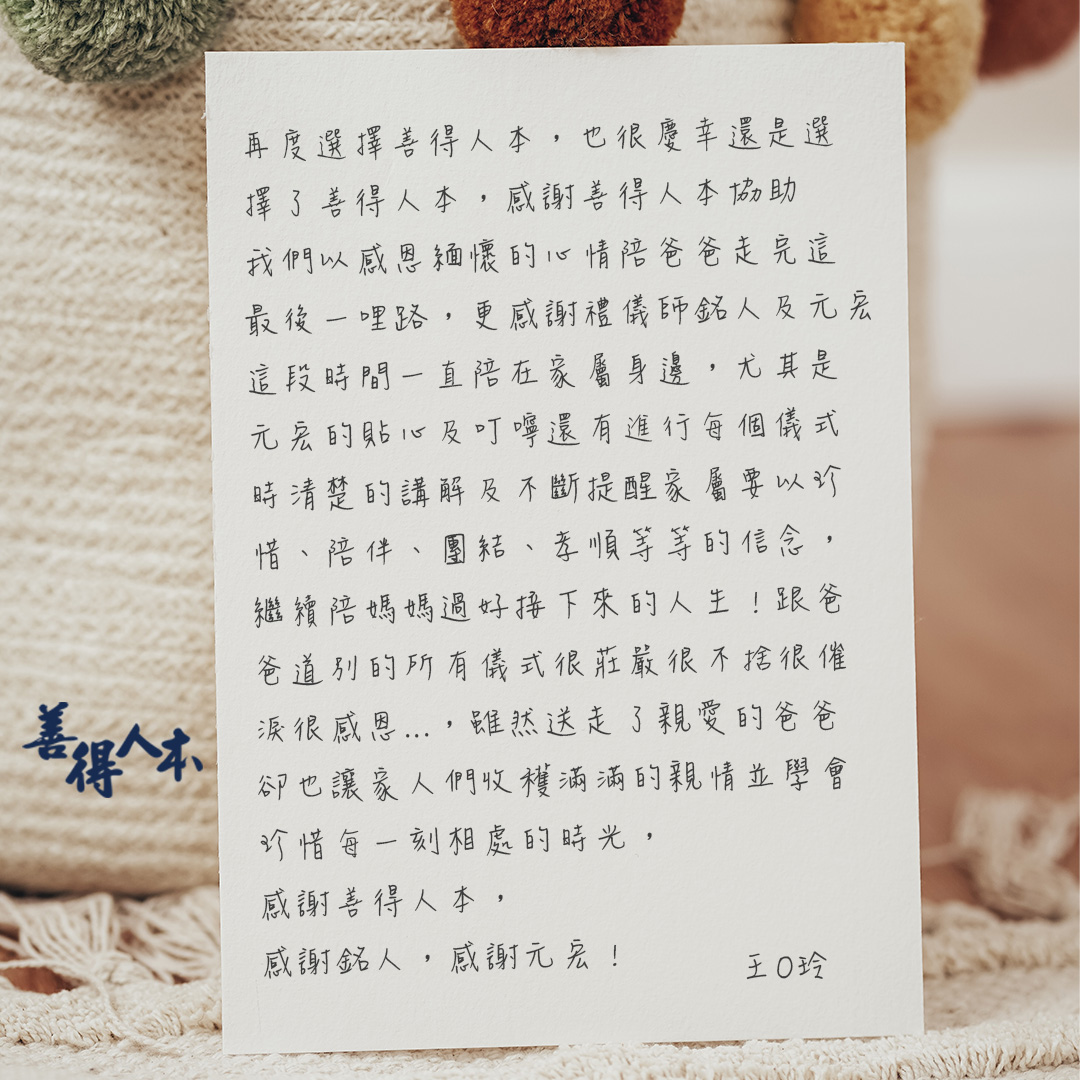 再度選擇善得人本，也很慶幸還是選
擇了善得人本，感謝善得人本協助
我們以感恩緬懷的心情陪爸爸走完這
最後一哩路，更感謝禮儀師銘人及元宏
這段時間一直陪在家屬身邊，尤其是
元宏的貼心及叮嚀還有進行每個儀式
時清楚的講解及不斷提醒家屬要以珍
惜、陪伴、團結、孝順等等的信念，
繼續陪媽媽過好接下來的人生！跟爸
爸道別的所有儀式很莊嚴很不捨很催
淚很感恩...，雖然送走了親愛的爸爸
卻也讓家人們收穫滿滿的親情並學會
珍惜每一刻相處的時光，
感謝善得人本，
感謝銘人，感謝元宏！
王O玲
善得人本